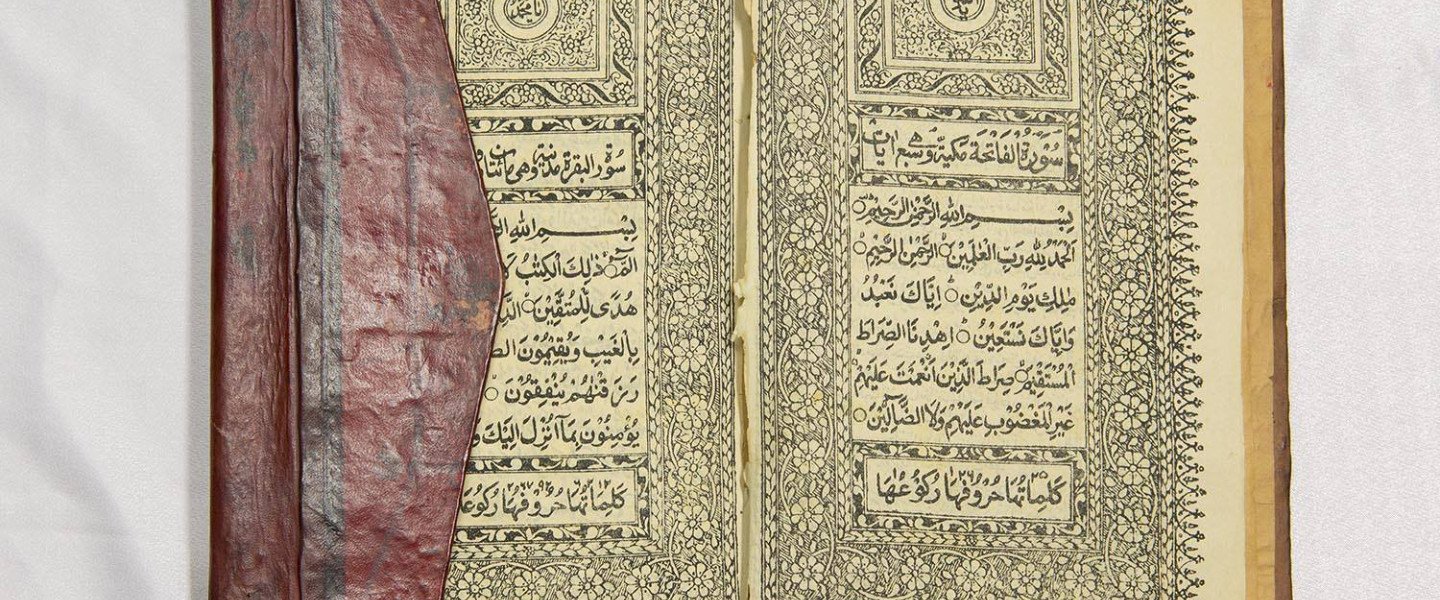 الله
سُورَةُ الفَاتِحَة مَكيّة وهى سبع ايات
بِسْمِ اللهِ الرَّحْمٰنِ الرَّحِيْمِ
اَلْحَمْدُ لِلّٰهِ رَبِّ الْعٰلَمِيْنَ الرَّحْمٰنِ الرَّحِيْمِ
مٰلِكِ يَوْمِ الدِّيْنِ اِيَّاكَ نَعْبُدُ
وَاِيَّاكَ نَسْتَعِيْنُ اِهْدِنَا الصِّرَاطَ
الْمُسْتَقِيْمَ صِرَاطَ الَّذِيْنَ اَنْعَمْتَ عَلَيْهِمْ
غَيْرِ الْمَغْضُوْبِ عَلَيْهِمْ وَلَا الضَّآلِّيْنَ
كَلِمَاتُهَا ٢٥ حُرُوفُهَا ١٢٦ رُكُوعُهَا ١
يا محمد
سورة البقرة مدنية وهى مائتان
بِسْمِ اللهِ
الٓمّٓ ذٰلِكَ الْكِتٰبُ
هُدًى لِّلْمُتَّقِيْنَ
بِالْغَيْبِ وَيُقِيْمُوْنَ
رَزَقْنٰهُمْ يُنْفِقُوْنَ
يُؤْمِنُوْنَ بِمَآ اُنْزِلَ اِلَيْكَ
كَلِمَاتُهَا حُرُوفُهَا